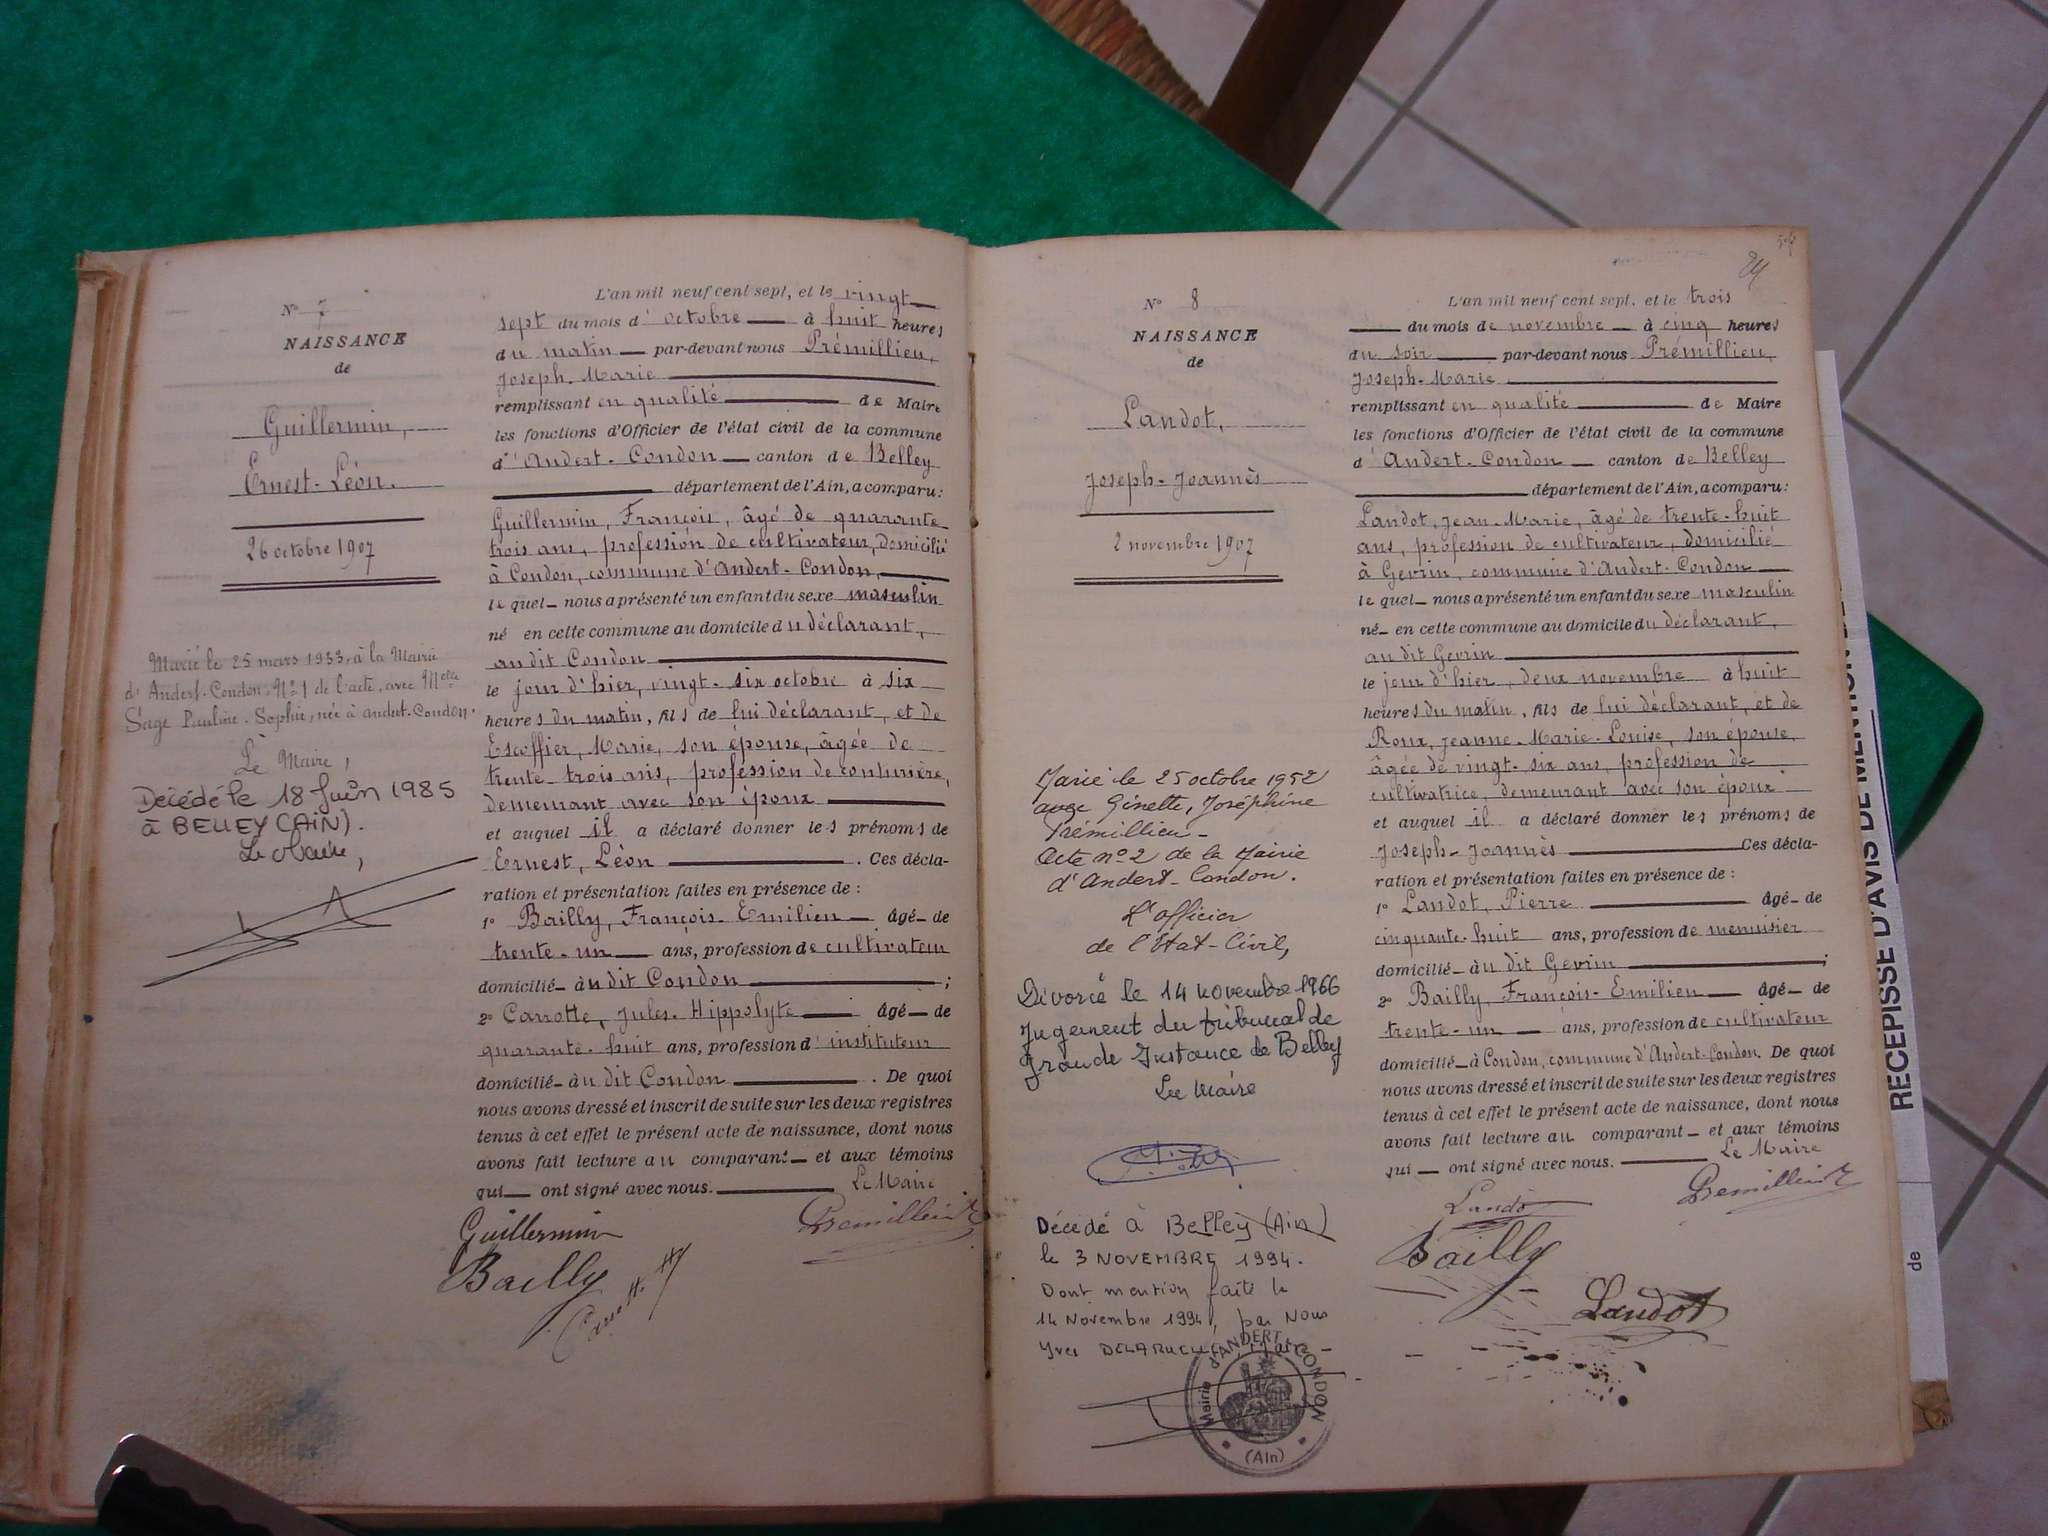 N° 7
NAISSANCE
de
Guillermin,
Ernest-Léon.
26 octobre 1907
Marié le 25 mars 1933, à la Mairie
d'Andert-Condon, N° 1 de l'acte, avec Melle
Sage Pauline-Sophie, née à andert-Condon.
Le Maire,
Décédé le 18 Juin 1985
à BELLEY (AIN).
Le Maire,
L'an mil neuf cent sept, et le vingt
sept du mois d'octobre à huit heures
du matin par-devant nous Prémillieu,
Joseph-Marie
remplissant en qualité de Maire
les fonctions d'Officier de l'état civil de la commune
d'Andert-Condon canton de Belley
département de l'Ain, a comparu:
Guillermin, François, âgé de quarante
trois ans, profession de cultivateur, domicilié
à Condon, commune d'Andert-Condon,
le quel nous a présenté un enfant du sexe masculin
né en cette commune au domicile du déclarant,
au dit Condon
le jour d'hier, vingt-six octobre à six
heures du matin, fils de lui déclarant, et de
Escoffier, Marie, son épouse, âgée de
trente-trois ans, profession de couturière,
demeurant avec son époux
et auquel il a déclaré donner les prénoms de
Ernest, Léon. Ces décla-
ration et présentation faites en présence de :
1° Bailly, François-Emilien âgé de
trente-un ans, profession de cultivateur
domicilié au dit Condon ;
2° Carrotte, Jules-Hippolyte âgé de
quarante-huit ans, profession d'instituteur
domicilié au dit Condon. De quoi
nous avons dressé et inscrit de suite sur les deux registres
tenus à cet effet le présent acte de naissance, dont nous
avons fait lecture au comparant et aux témoins
qui ont signé avec nous. Le Maire
Guillermin Premillieu
Bailly
N° 8
NAISSANCE
de
Landot,
Joseph-Joannès
2 novembre 1907
Marié le 25 octobre 1952
avec Ginette, Joséphine
Prémillieu-
Acte n° 2 de la Mairie
d'Andert-Condon.
L'officier
de l'Etat-Civil,
Divorcé le 14 novembre 1966
Jugement du tribunal de
Grande Instance de Belley
Le Maire
Décédé à Belley (Ain)
le 3 NOVEMBRE 1994.
Dont mention faite le
14 Novembre 1994, par Nous
Yves DELARUELLE, Maire
Mairie d'ANDERT-CONDON
(Ain)
24
L'an mil neuf cent sept, et le trois
du mois de novembre à cinq heures
du soir par-devant nous Prémillieu,
Joseph-Marie
remplissant en qualité de Maire
les fonctions d'Officier de l'état civil de la commune
d'Andert-Condon canton de Belley
département de l'Ain, a comparu:
Landot, Jean-Marie, âgé de trente-huit
ans, profession de cultivateur, domicilié
à Gevrin, commune d'Andert-Condon
le quel nous a présenté un enfant du sexe masculin
né en cette commune au domicile du déclarant,
au dit Gevrin
le jour d'hier, deux novembre à huit
heures du matin, fils de lui déclarant, et de
Roux, Jeanne-Marie-Louise, son épouse,
âgée de vingt-six ans, profession de
cultivatrice, demeurant avec son époux
et auquel il a déclaré donner les prénoms de
Joseph-Joannès Ces décla-
ration et présentation faites en présence de :
1° Landot, Pierre âgé de
cinquante-huit ans, profession de menuisier
domicilié au dit Gevrin ;
2° Bailly, François-Emilien âgé de
trente-un ans, profession de cultivateur
domicilié à Condon, commune d'Andert-Condon. De quoi
nous avons dressé et inscrit de suite sur les deux registres
tenus à cet effet le présent acte de naissance, dont nous
avons fait lecture au comparant et aux témoins
qui ont signé avec nous. Le Maire
Landot Premillieu
Bailly
Landot
RECEPISSE D'AVIS DE MENTION
de